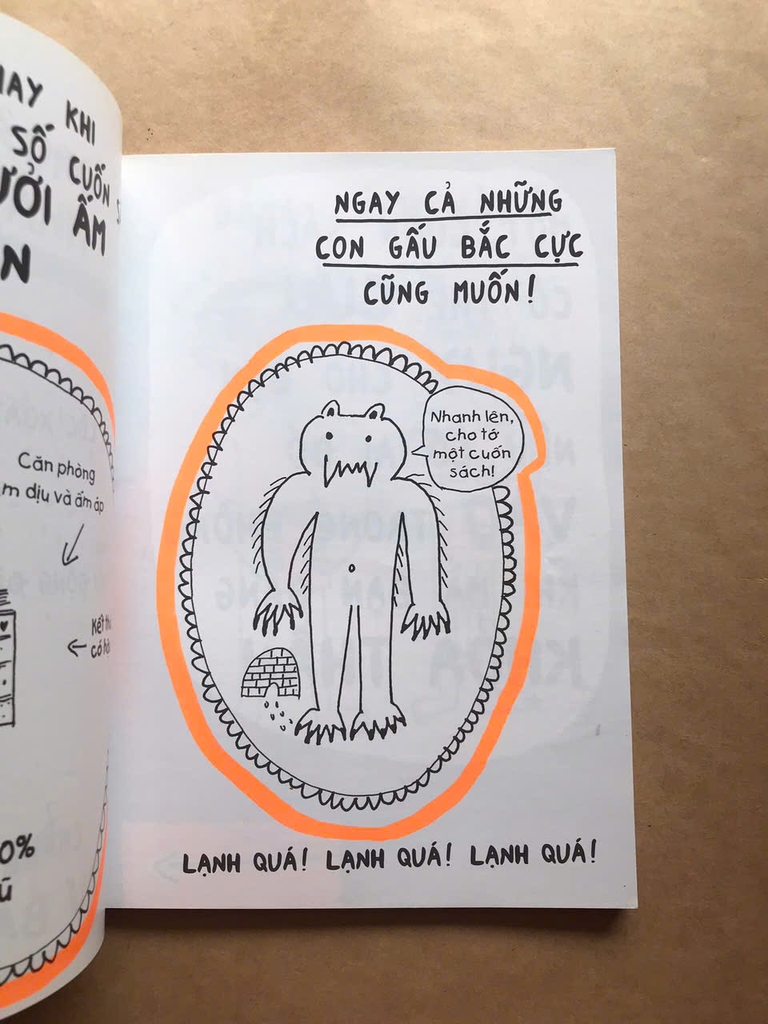 KHI
SỐ CUỐN
ẤM
Căn phòng
dịu và ấm áp
có
0%
NGAY CẢ NHỮNG
CON GẤU BẮC CỰC
CŨNG MUỐN!
Nhanh lên,
cho tớ
một cuốn
sách!
LẠNH QUÁ! LẠNH QUÁ! LẠNH QUÁ!